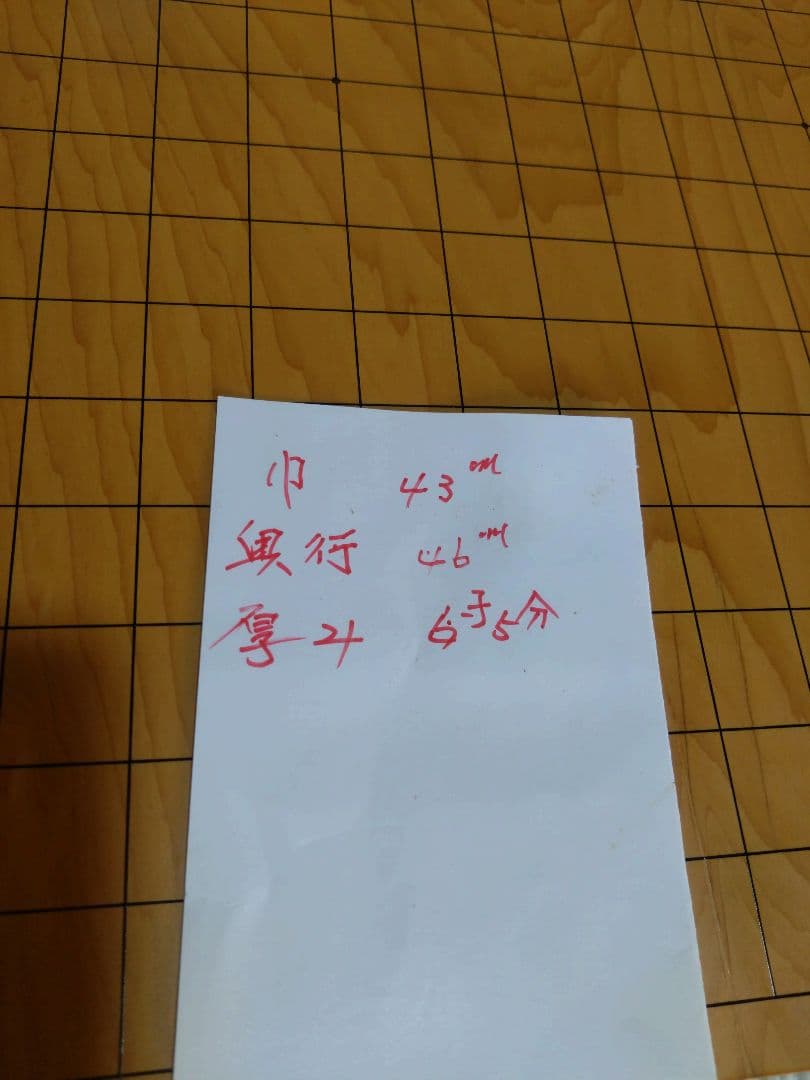 巾 43cm
奥行 46cm
厚み 6寸5分